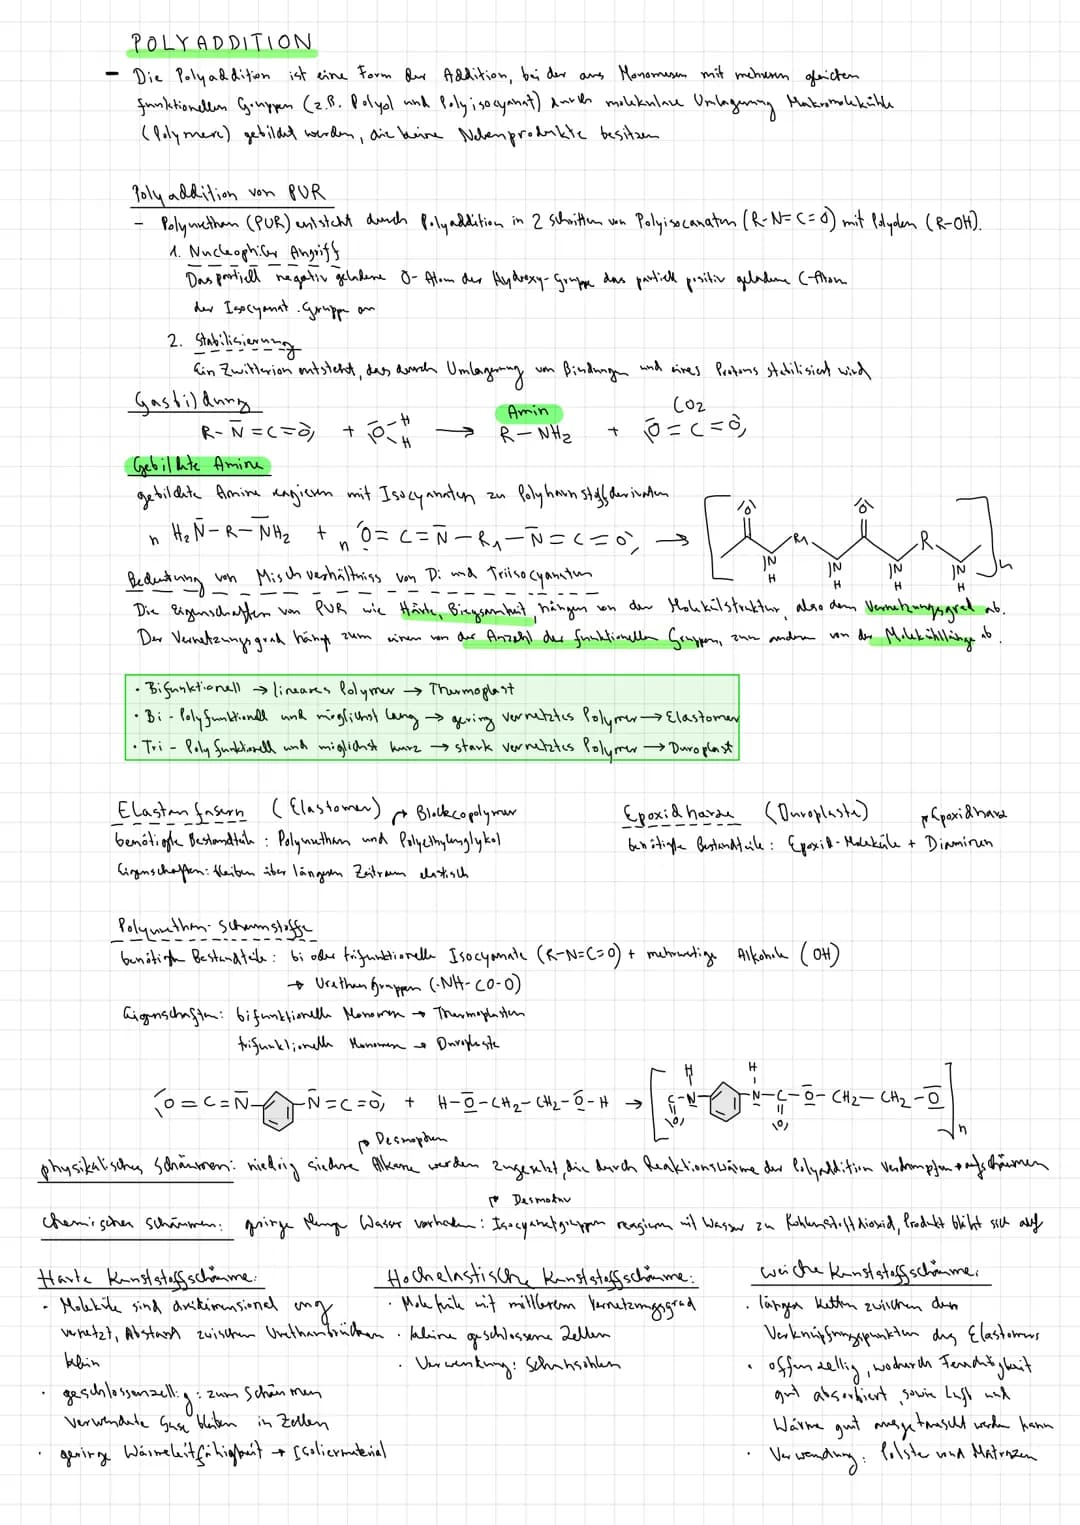 POLYADDITION
- Die Polyaddition ist eine Form der Addition, bei der aus Monomeren mit mehreren gleichen
funktionellen Gruppen (z.B. Polyol und Polyisocyanat) durch molekulare Umlagerung Makromoleküle
(Polymere) gebildet werden, die keine Nebenprodukte besitzen
Polyaddition von PUR
- Polyurethan (PUR) entsteht durch Polyaddition in 2 Schritten von Polyisocanaten (R-N=C=O) mit Polyolen (R-OH).
1. Nucleophiler Angriff
Das partiell negativ geladene O-Atom der Hydroxy-Gruppe das partiell positiv geladene C-Atom
der Isocyanat-Gruppe an
2. Stabilisierung
Ein Zwitterion entsteht, das durch Umlagerung von Bindungen und eines Protons stabilisiert wird
Gasbildung
Amin CO2
R-N=C=O + O-H H → R-NH2 + O=C=O
Gebildete Amine
gebildete Amine reagieren mit Isocyanaten zu Polyharnstoffderivaten
n H2N-R-NH2 + n O=C=N-R1-N=C=O → [ O O R1 R N H N H N H N H ]n
Bedeutung von Mischverhältniss von Di und Triisocyanaten
Die Eigenschaften von PUR wie Härte, Biegsamkeit, hängen von der Molekülstruktur, also dem Vernetzungsgrad ab.
Der Vernetzungsgrad hängt zum einen von der Anzahl der funktionellen Gruppen, zum anderen von der Moleküllänge ab.
· Bifunktionell → lineares Polymer → Thermoplast
· Bi - Polyfunktionell und möglichst lang → gering vernetztes Polymer → Elastomer
· Tri - Polyfunktionell und möglichst kurz → stark vernetztes Polymer → Duroplast
Elastanfasern (Elastomer) → Blockcopolymer
benötigte Bestandteile : Polyurethan und Polyethylenglykol
Eigenschaften: bleiben über längeren Zeitraum elastisch
Epoxidharze (Duroplaste) → Epoxidharz
benötigte Bestandteile : Epoxid-Moleküle + Diaminen
Polyurethan-Schaumstoffe
benötigte Bestandteile : bi oder trifunktionelle Isocyanate (R-N=C=O) + mehrwertige Alkohole (OH)
→ Urethangruppen (-NH-CO-O)
Eigenschaften: bifunktionelle Monomere → Thermoplasten
trifunktionelle Monomere → Duroplaste
O=C=N- -N=C=O + H-O-CH2-CH2-O-H → [ C-N- -N-C-O-CH2-CH2-O ]n
→ Desmophen
physikalisches Schäumen: niedrig siedene Alkane werden zugesetzt, die durch Reaktionswärme der Polyaddition verdampfen + aufschäumen
→ Desmodur
Chemischen Schäumen: geringe Menge Wasser vorhanden : Isocyanatgruppen reagieren mit Wasser zu Kohlenstoffdioxid, Produkt bläht sich auf
Harte Kunststoffschäume:
· Moleküle sind dreidimensional eng
vernetzt, Abstand zwischen Urethanbrücken
klein
· geschlossenzellig : zum Schäumen
verwendete Gase bleiben in Zellen
· geringe Wärmeleitfähigkeit → Isoliermaterial
Hochelastische Kunststoffschäume:
· Moleküle mit mittlerem Vernetzungsgrad
· kleine geschlossene Zellen
· Verwendung: Schuhsohlen
weiche Kunststoffschäume:
· längere Ketten zwischen den
Verknüpfungspunkten des Elastomers
· offenzellig, wodurch Feuchtigkeit
gut absorbiert, sowie Luft und
Wärme gut ausgetauscht werden kann
· Verwendung: Polster und Matratzen